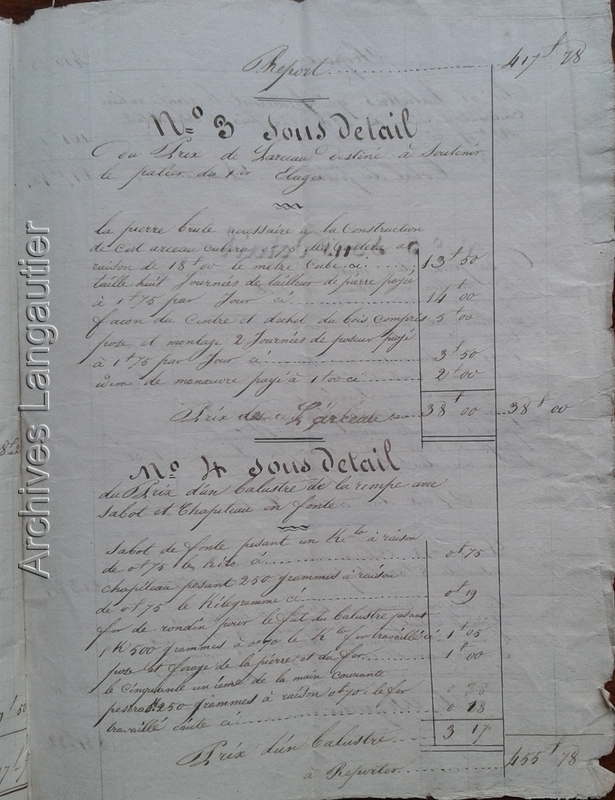 Report 417f 78
N=o 3 Sous Detail
du Prix de Larceau destiné à Soutenir
le palier du 1er Etage
la pierre brute necessaire à la Construction
de cet arceau cubera 0m75
raison de 18f 00 le métre Cube ci 13f 50
taille huit Journées de tailleur de pierre payé
à 1f75 par Jour ci 14f 00
façon du Cintre et dechet du bois compris 5f 00
pose et montage 2 Journées de poseur payé
à 1f75 par Jour ci 3f 50
idem de manœuvre payé à 1f00 ci 2f 00
Prix de L'arceau 38f 00 38f 00
No 4 Sous Detail
du Prix d'un balustre de la rempe avec
Sabot et Chapiteau en fonte
Sabot de fonte pesant un Kto à raison
de 0f75 le Kilo ci 0f 75
chapiteau pesant 250 grammes à raison
de 0f75 le Kilogramme ci 0f 19
fer de rondin pour le fut du balustre pesant
1K500 grammes à 0f70 le Kto fer travaillé ci 1f 05
pose et forage de la pierre et du fer 1f 00
le Cinquante un ieme de la main Courante
pesant 250 grammes à raison 0f70 le fer
travaillé ci 0 18
Prix d'un balustre 3 17
à Reporter 455f 78
Archives Langautier